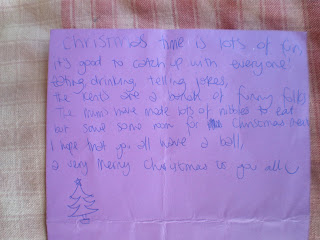 Christmas time is lots of fun,
it's good to catch up with everyone!
Eating, drinking, telling jokes,
the are a bunch of funny folks.
The mums have made lots of nibbles to eat
but save some room for Christmas
I hope that you all have a ball,
a very merry Christmas to you all